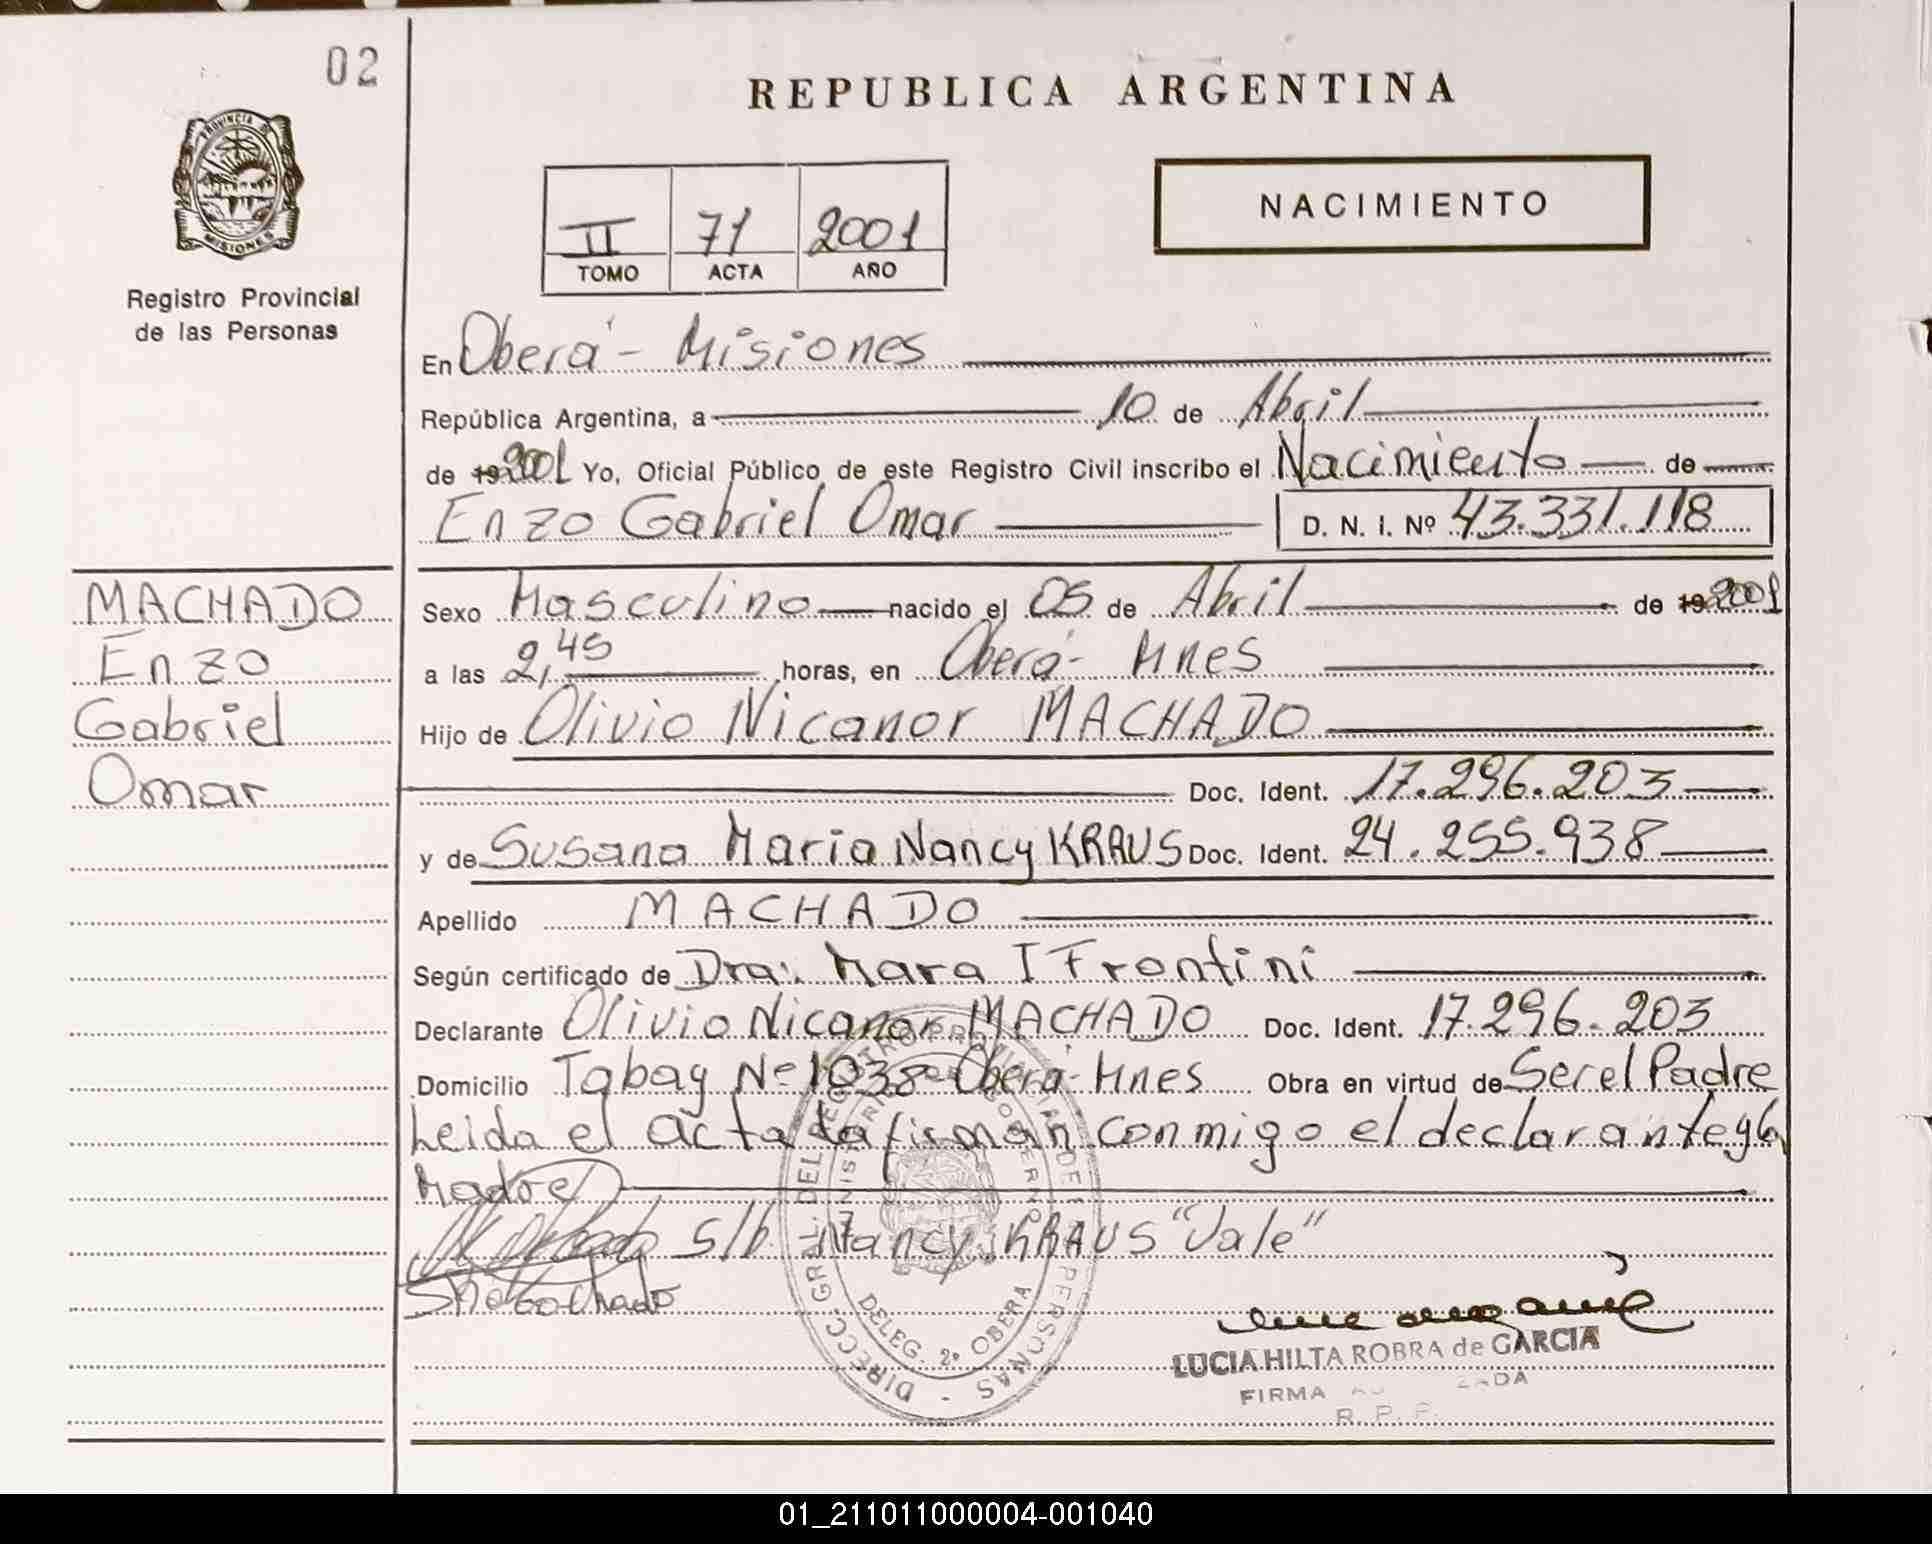 02
PROVINCIA DE
MISIONES
Registro Provincial
de las Personas
REPUBLICA ARGENTINA
II 71 2001
TOMO ACTA AÑO
NACIMIENTO
En Oberá - Misiones
República Argentina, a 10 de Abril
de 19 2001 Yo, Oficial Público de este Registro Civil inscribo el Nacimiento de
Enzo Gabriel Omar D. N. I. Nº 43.331.118
MACHADO
Enzo
Gabriel
Omar
Sexo Masculino nacido el 05 de Abril de 19 2001
a las 2,45 horas, en Oberá - Mnes
Hijo de Olivio Nicanor MACHADO
Doc. Ident. 17.296.203
y de Susana Maria Nancy KRAUS Doc. Ident. 24.255.938
Apellido MACHADO
Según certificado de Dra. Mara I Frontini
Declarante Olivio Nicanor MACHADO Doc. Ident. 17.296.203
Domicilio Tabay Nº 1038 - Oberá - Mnes Obra en virtud de Ser el Padre
Leida el acta la firman conmigo el declarante y la
Madre
s/b - Nancy KRAUS "Vale"
DIRECC. GRAL. DEL REGISTRO PROVINCIAL DE PERSONAS -
MINISTERIO GOBIERNO
DELEG. 2º OBERA
LUCIA HILTA ROBRA de GARCIA
FIRMA
R. P. P.
01_211011000004-001040